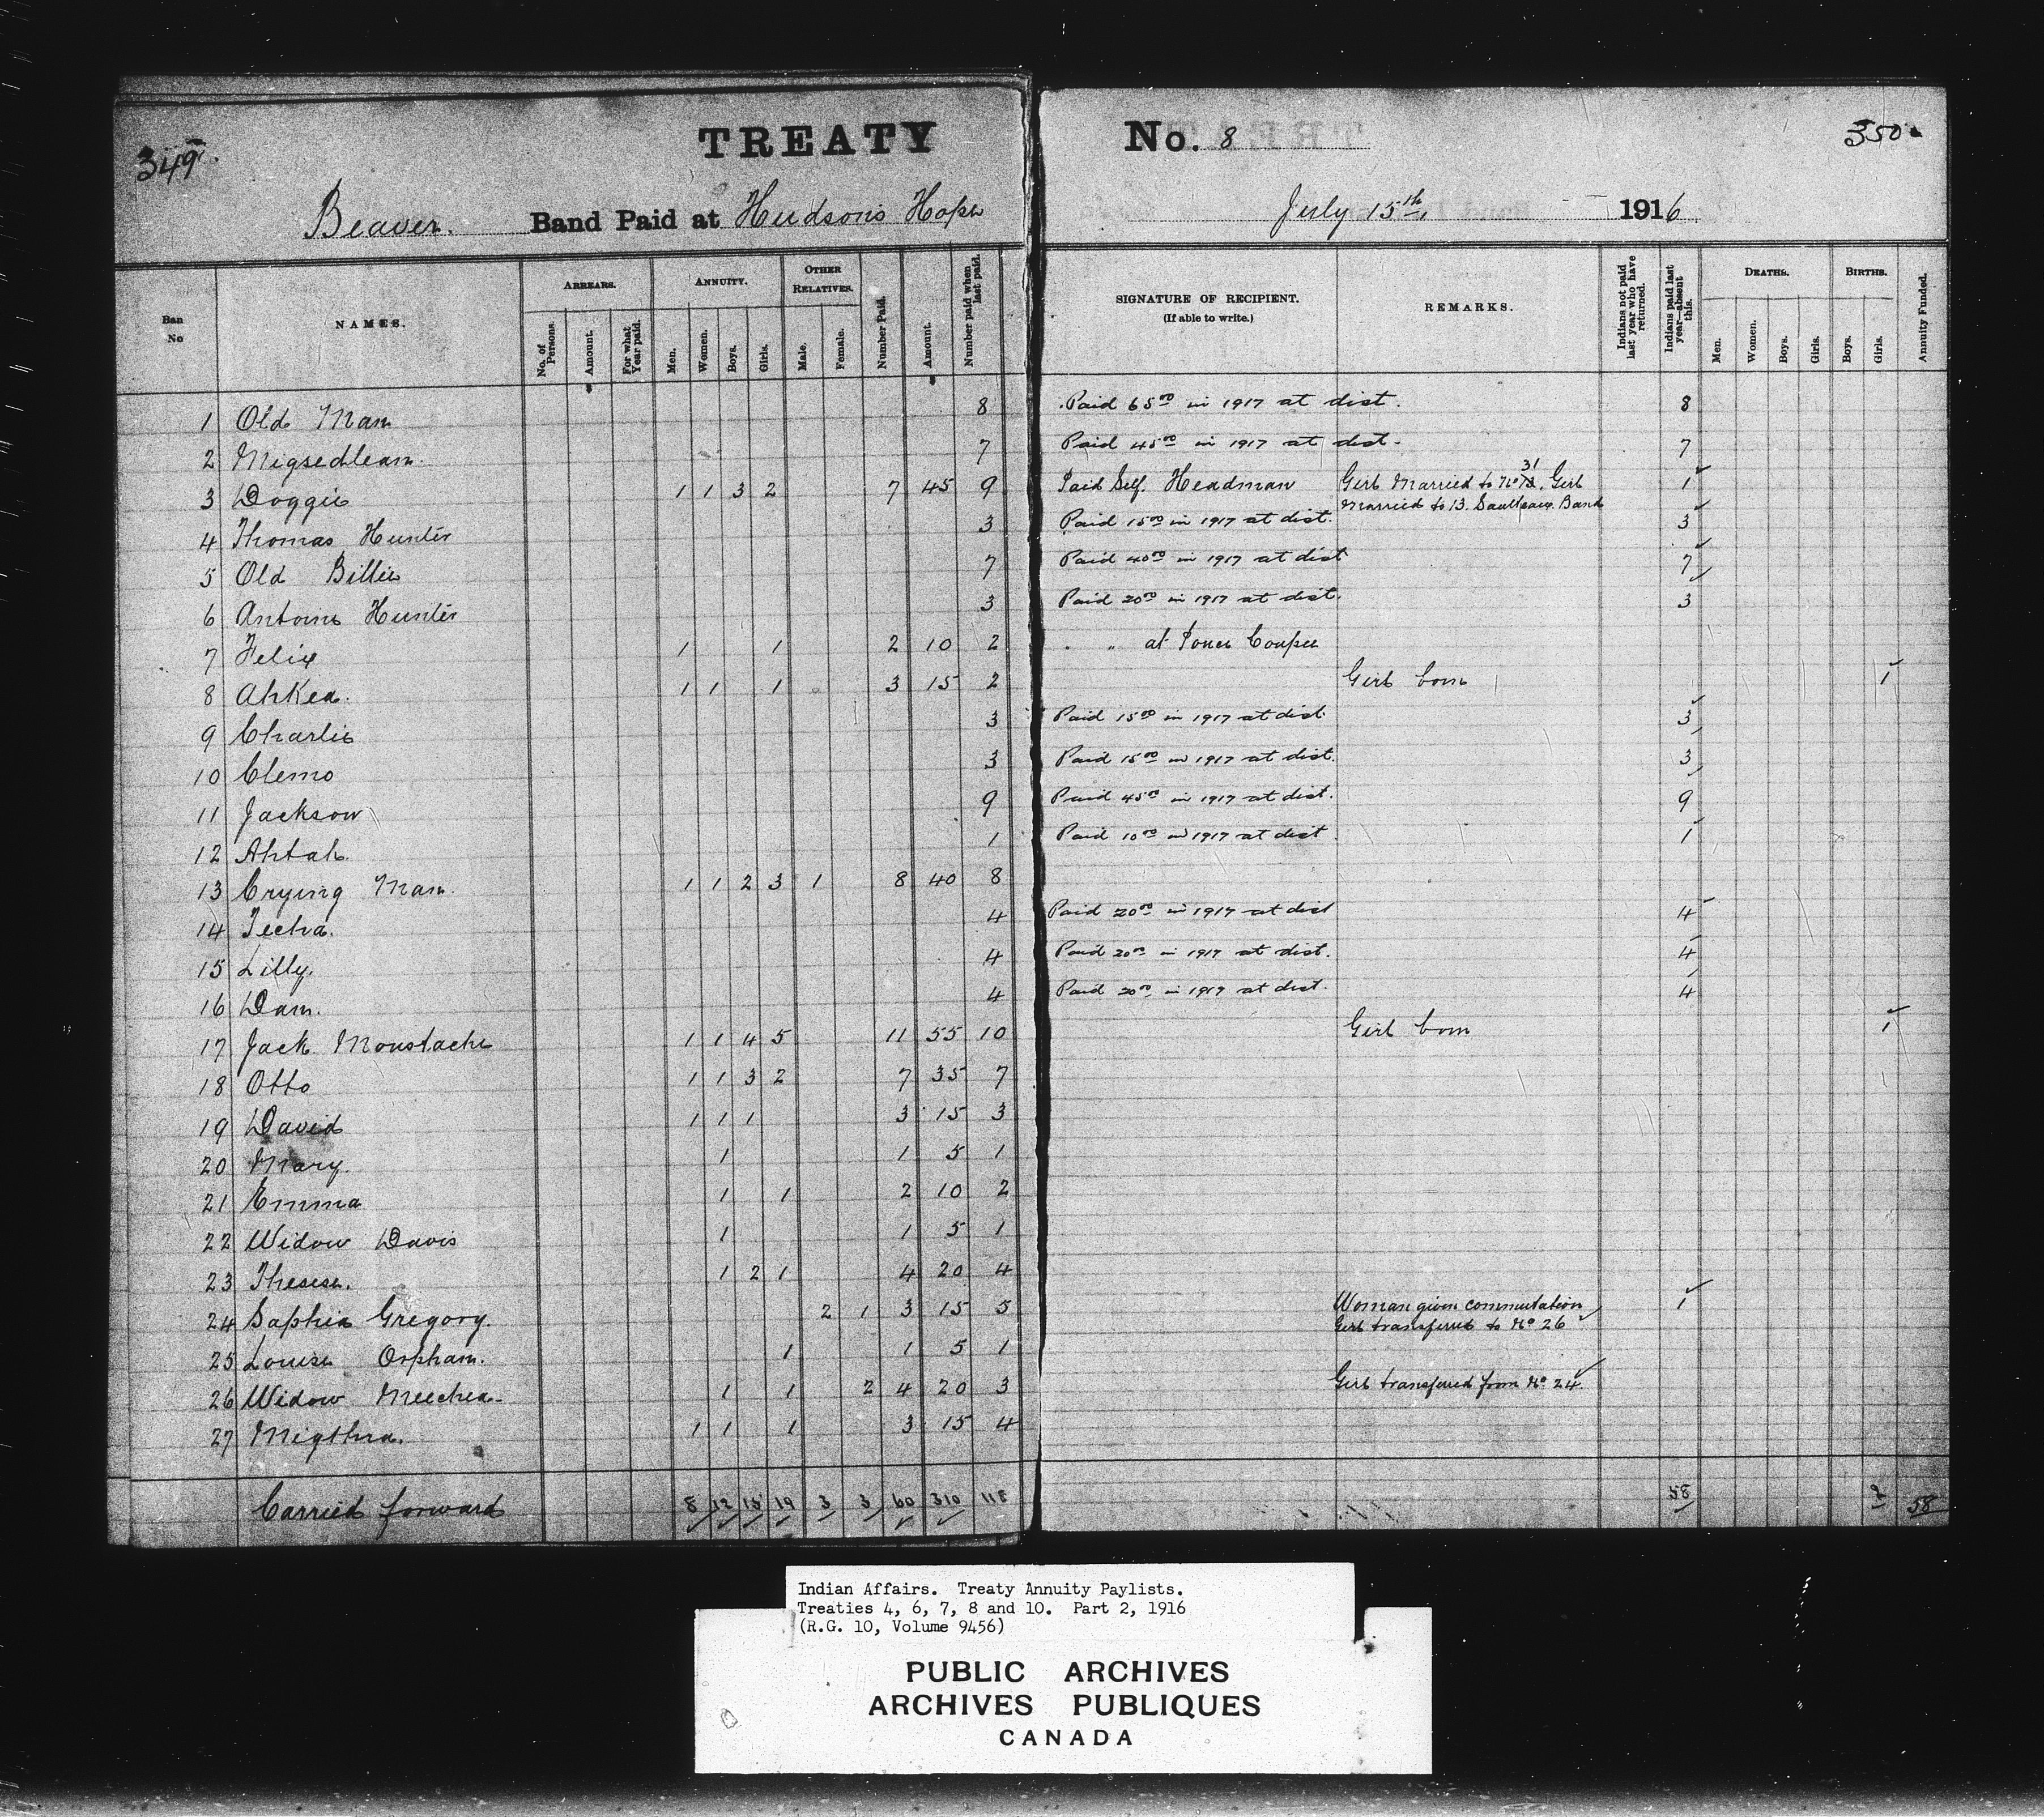 349. TREATY No. 8 350
Beaver. Band Paid at Hudson's Hope July 15th, 1916
Ban No
NAMES.
ARREARS.
No. of Persons.
Amount.
For what Year paid.
ANNUITY.
Men.
Women.
Boys.
Girls.
OTHER RELATIVES.
Male.
Female.
Number Paid.
Amount.
Number paid when last paid.
SIGNATURE OF RECIPIENT.
(If able to write.)
REMARKS.
Indians not paid last year who have returned.
Indians paid last year—absent this.
DEATHS.
Men.
Women.
Boys.
Girls.
BIRTHS.
Boys.
Girls.
Annuity Funded.
1 Old Man 8 Paid 65 00 in 1917 at dist. 8
2 Migsedleam. 7 Paid 45 00 in 1917 at dist. 7
3 Doggie 1 1 3 2 7 45 9 Paid Self. Headman Girl Married to No 31. Girl 1
Married to 13. Saulteaux Band
4 Thomas Hunter 3 Paid 15 00 in 1917 at dist. 3
5 Old Billie 7 Paid 40 00 in 1917 at dist 7
6 Antoine Hunter 3 Paid 20 00 in 1917 at dist. 3
7 Felix 1 1 2 10 2 " " at Pouce Coupee
8 Ahkea. 1 1 1 3 15 2 Girl born 1
9 Charlie 3 Paid 15 00 in 1917 at dist 3
10 Clemo 3 Paid 15 00 in 1917 at dist. 3
11 Jackson 9 Paid 45 00 in 1917 at dist. 9
12 Ahtah. 1 Paid 10 00 in 1917 at dist 1
13 Crying Man. 1 1 2 3 1 8 40 8
14 Techa. 4 Paid 20 00 in 1917 at dist 4
15 Lilly. 4 Paid 20 00 in 1917 at dist. 4
16 Dam. 4 Paid 20 00 in 1917 at dist. 4
17 Jack Moustache 1 1 4 5 11 55 10 Girl born 1
18 Otto 1 1 3 2 7 35 7
19 David 1 1 1 3 15 3
20 Mary. 1 1 5 1
21 Emma 1 1 2 10 2
22 Widow Davis 1 1 5 1
23 Therese. 1 2 1 4 20 4
24 Saphia Gregory. 2 1 3 15 5 Woman given commutation 1
Girl transferred to No 26
25 Louise Orphan. 1 1 5 1
26 Widow Meechea. 1 1 2 4 20 3 Girl transferred from No. 24.
27 Migthea. 1 1 1 3 15 4
Carried forward 8 12 15 19 3 3 60 310 118 58 2 58
Indian Affairs. Treaty Annuity Paylists.
Treaties 4, 6, 7, 8 and 10. Part 2, 1916
(R.G. 10, Volume 9456)
PUBLIC ARCHIVES
ARCHIVES PUBLIQUES
CANADA